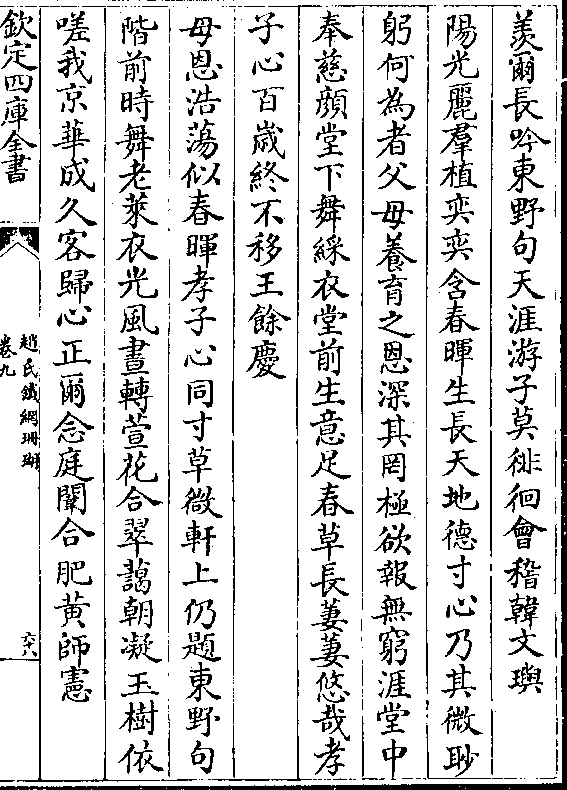 羡爾長吟東野句天涯游子莫徘徊會稽韓文璵
陽光麗羣植奕奕含春暉生長天地德寸心乃其微眇
躬何為者父母養育之恩深其罔極欲報無窮涯堂中
奉慈顔堂下舞綵衣堂前生意足春草長萋萋悠哉孝
子心百歳終不移王餘慶
母恩浩蕩似春暉孝子心同寸草微軒上仍題東野句
階前時舞老萊衣光風晝轉萱花合翠藹朝凝玉樹依
嗟我京華成久客歸心正爾念庭闈合肥黄師憲
欽定四庫全書
趙氏鐵網珊瑚
卷九
六八